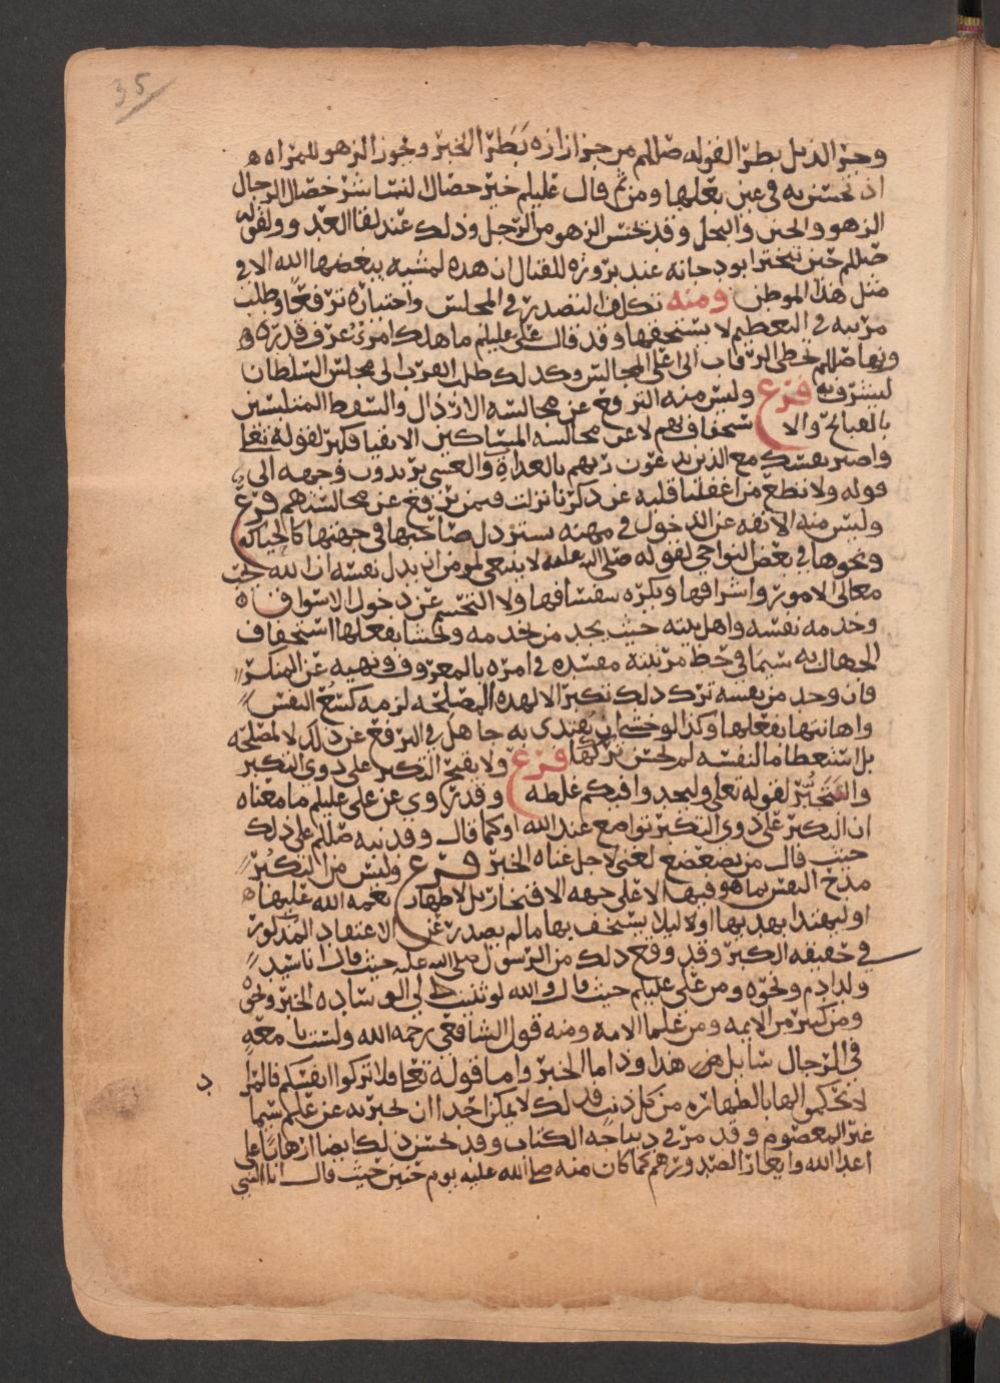 35
وجر الذيل بطرا لقوله صللم من جر ازاره بطرا الخبر ويجوز الزهو للمراه
اذ تحسن به في عين بعلها ومن ثم قال عليلم خير خصال النسا شر خصال الرجال
الزهو والجبن والبخل وقد يحسن الزهو من الرجل وذلك عند لقا العدو ولقوله
صللم حين تبختر ابو دجانه عند بروزه للقتال ان هذه لمشيه يبغضها الله الا في
مثل هذا الموطن ومنه تكلف التصدر في المجلس واختياره ترفعا وطلب
مرتبه في التعظيم لا يستحقها وقد قال علي عليلم ما هلك امرؤ عرف قدره
ونها صللم تخطي الرقاب الى اعلى المجالس وكذلك طلب القرب الى مجلس السلطان
ليتشرف به فرع وليس منه الترفع عن مجالسه الارذال والسقط المتلبسين
بالقبائح والا ستخفاف بهم لا عن مجالسه المساكين الاتقيا فكبر لقوله تعلى
واصبر نفسك مع الذين يدعون ربهم بالغداة والعشي يريدون وجهه الى
قوله ولا تطع من اغفلنا قلبه عن ذكرنا نزلت فيمن ترفع عن مجالستهم فرع
وليس منه الانفه عن الدخول في مهنه يسترذل صاحبها في جهتها كالحياكه
ونحوها في بعض النواحي لقوله صلى الله عليه لا ينبغي لمومن ان يذل نفسه ان الله يحب
معالي الامور واشرافها ويكره سفسافها ولا التحشم عن دخول الاسواق
وخدمه نفسه واهل بيته حيث يجد من يخدمه ويخشا بفعلها استخفاف
الجهال به سيما في حط مرتبته مفسده في امره بالمعروف ونهيه عن المنكر
فان وجد من نفسه ترك ذلك تكبرا لا لهذه المصلحه لزمه كسع النفس
واهانتها بفعلها وكذا لو خشي ان يقتدى به جاهل في الترفع عن ذلك لا لمصلحه
بل استعظاما لنفسه لم يحسن تركها فرع ولا يقبح التكبر على ذوي التكبر
والتجبر لقوله تعلى وليجدوا فيكم غلظه وقد روي عن علي عليلم ما معناه
ان التكبر على ذوي التكبر تواضع عند الله او كما قال وقد نبه صللم على ذلك
حيث قال من تضعضع لغني لاجل غناه الخبر فرع وليس من التكبر
مدح النفس بما هو فيها لا على جهه الافتخار بل لاظهار نعمه الله عليها
او ليهتدا بهديها او ليلا يستخف بها ما لم يصدر عن الاعتقاد المذكور
في حقيقه الكبر وقد وقع ذلك من الرسول صلى الله عليه حيث قال انا سيد
ولد ادم ونحوه ومن علي عليلم حيث قال والله لو ثنيت لي الوساده الخبر ونحوه
ومن كثير من الايمه ومن علما الامه ومنه قول الشافعي رحمه الله ولست بامعه
في الرجال سايل هذا وذا ما الخبر واما قوله تعلى فلا تزكوا انفسكم فالمراد
لا تحكموا لها بالطهاره من كل ذنب فذلك لا يمكن احدا ان يخبر به عن علم سيما
غير المعصوم وقد مر في ديباجه الكتاب وقد يحسن ذلك ايضا ارهابا على
اعدا الله وايغار الصدورهم كما كان منه صلى الله عليه يوم حنين حيث قال انا النبي